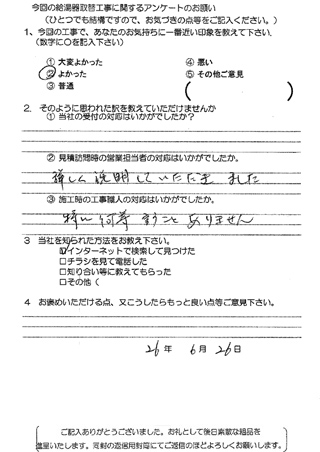 今回の給湯器取替工事に関するアンケートのお願い
(ひとつでも結構ですので、お気づきの点等をご記入ください。)
1、今回の工事で、あなたのお気持ちに一番近い印象を教えて下さい。
(数字に〇を記入下さい)
① 大変よかった ④ 悪い
② よかった ⑤ その他ご意見
③ 普通 ( )
2. そのように思われた訳を教えていただけませんか
① 当社の受付の対応はいかがでしたか?
② 見積訪問時の営業担当者の対応はいかがでしたか。
詳しく説明していただきました
③ 施工時の工事職人の対応はいかがでしたか。
特に何等言うことありません
3 当社を知られた方法をお教え下さい。
☑インターネットで検索して見つけた
□チラシを見て電話した
□知り合い等に教えてもらった
□その他(
4 お褒めいただける点、又こうしたらもっと良い点等ご意見下さい。
26年 6月 26日
ご記入ありがとうございました。お礼として後日素敵な粗品を
進呈いたします。同封の返信用封筒にてご返信のほどよろしくお願いします。